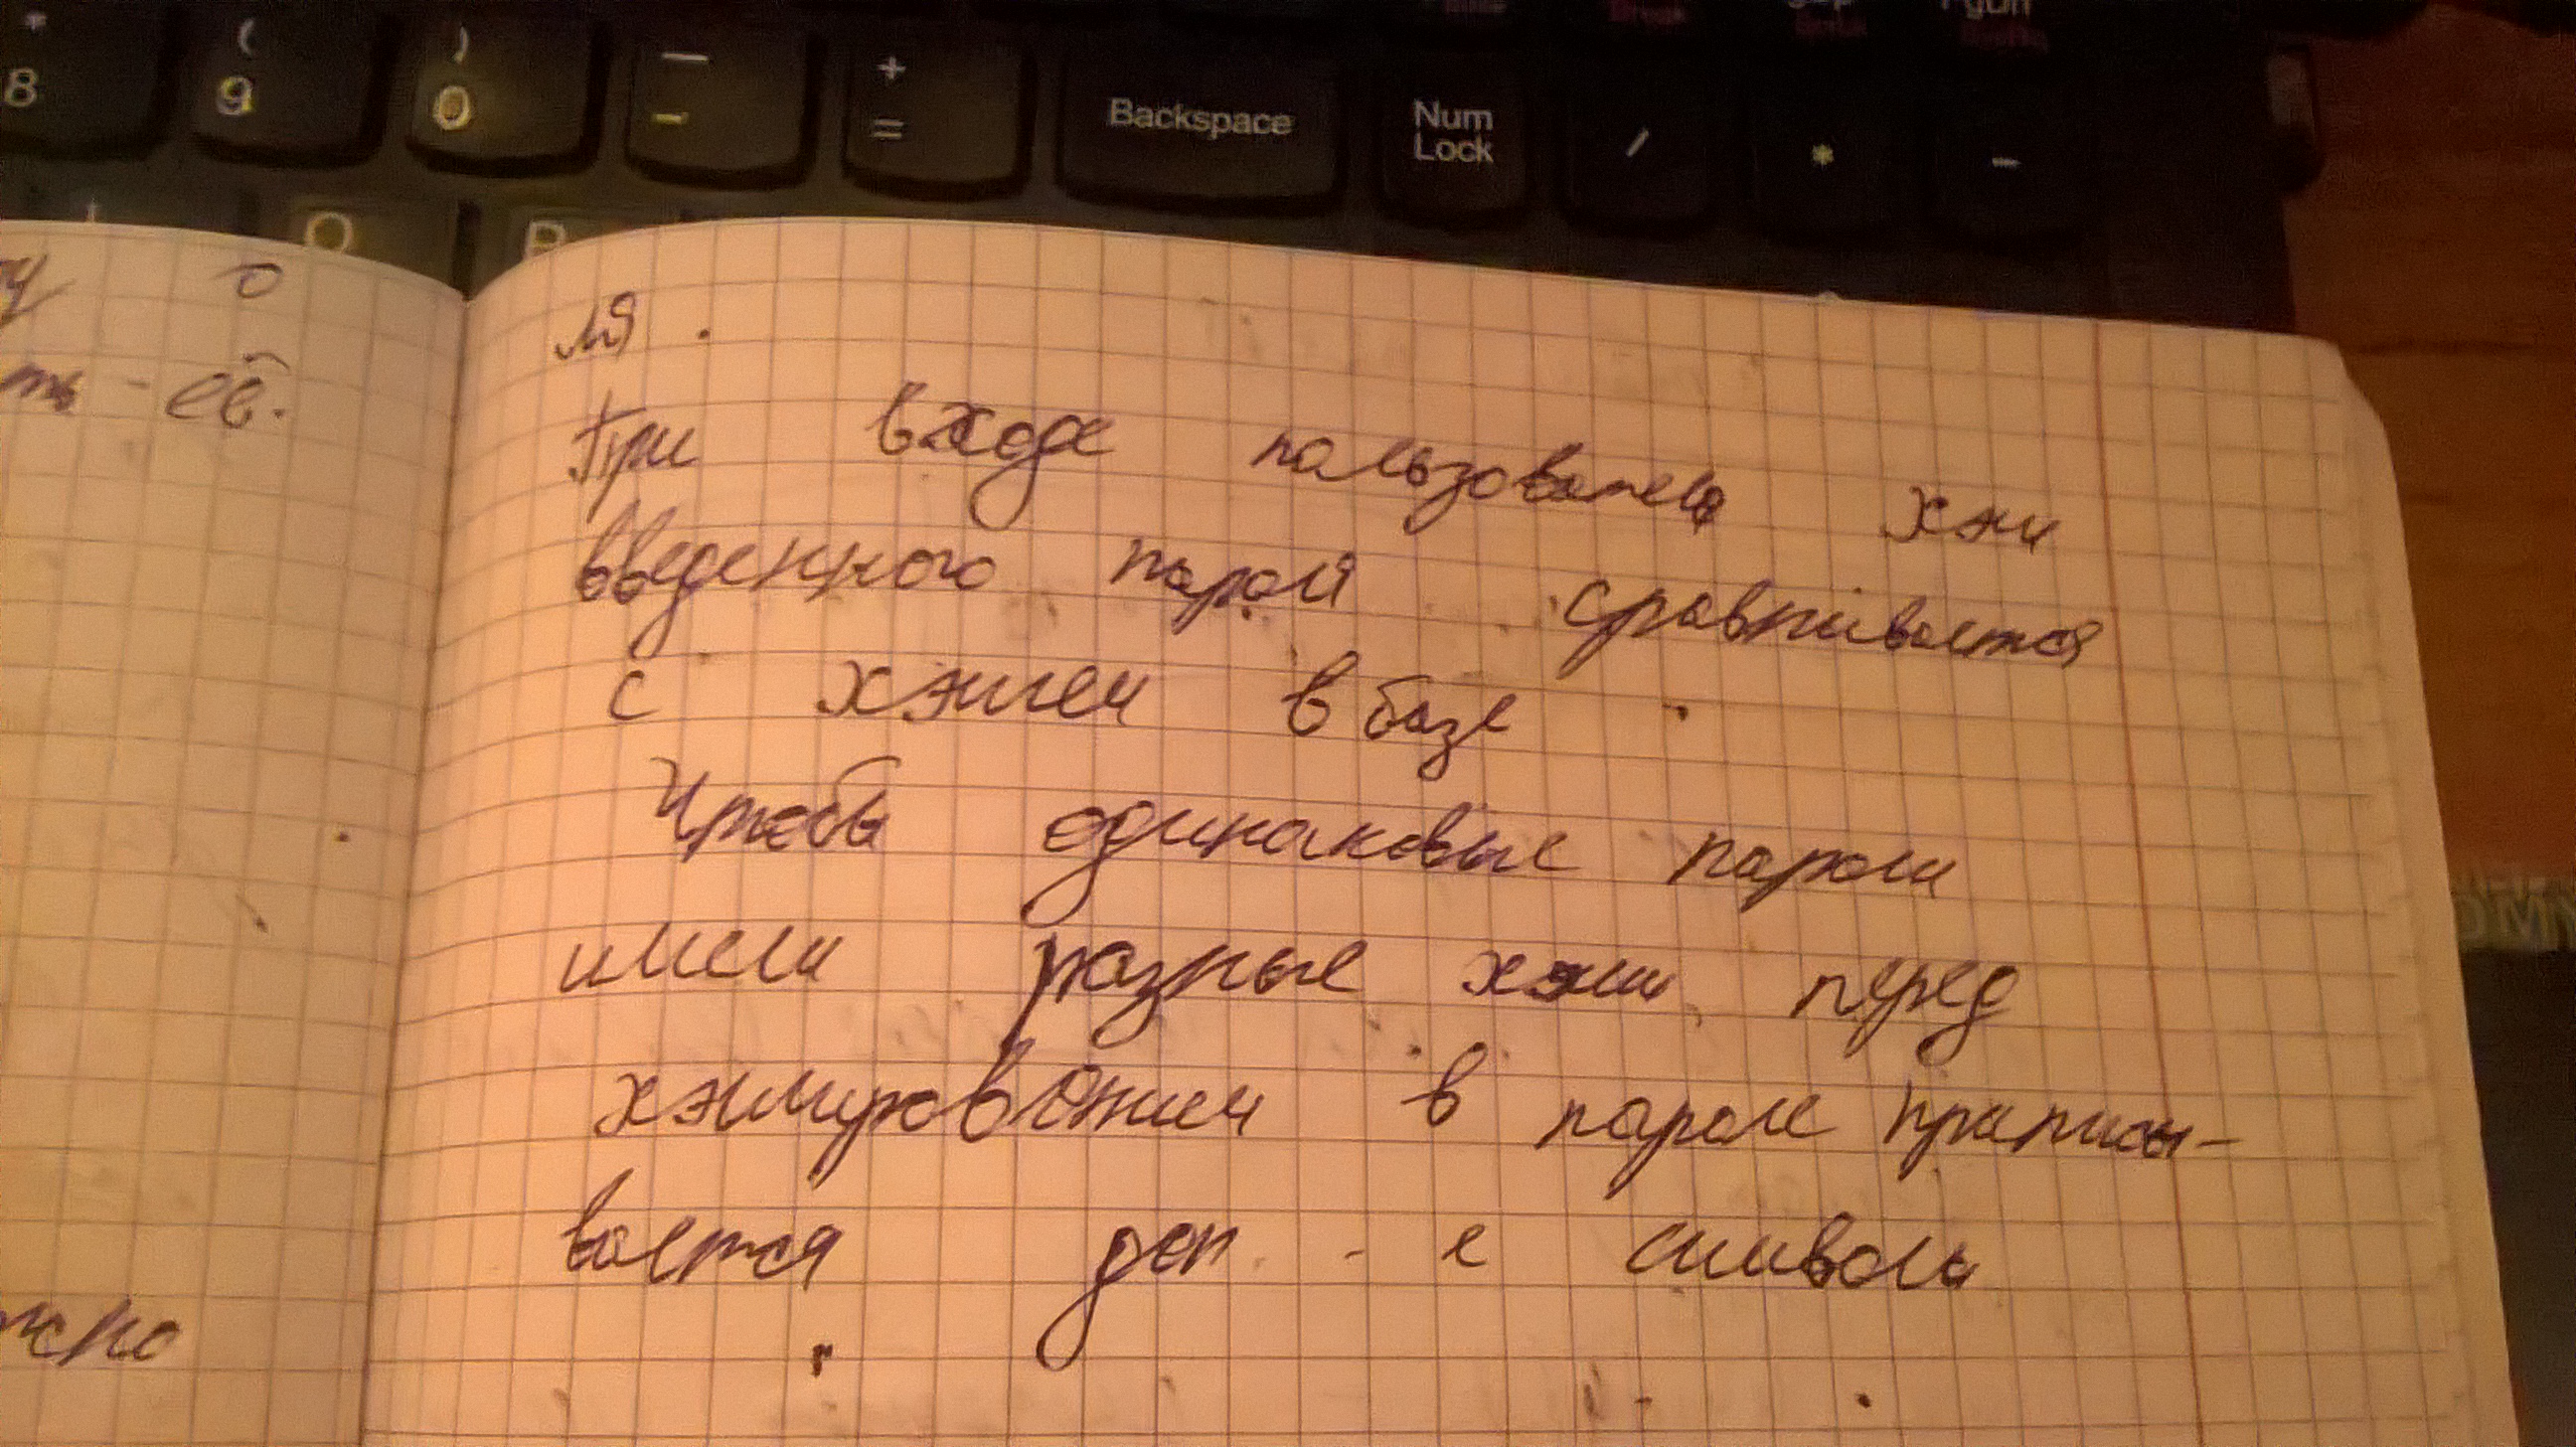 * ( ) — +
8 9 0 - = Backspace Num Lock / * -
O P
о
ть - её.
жно
ля.
При входе пользователя хэш
введенного пароля сравнивается
с хэшем в базе
Чтобы одинаковые пароли
имели разные хэши перед
хэшированием в пароле приписы-
вается доп. - е символы